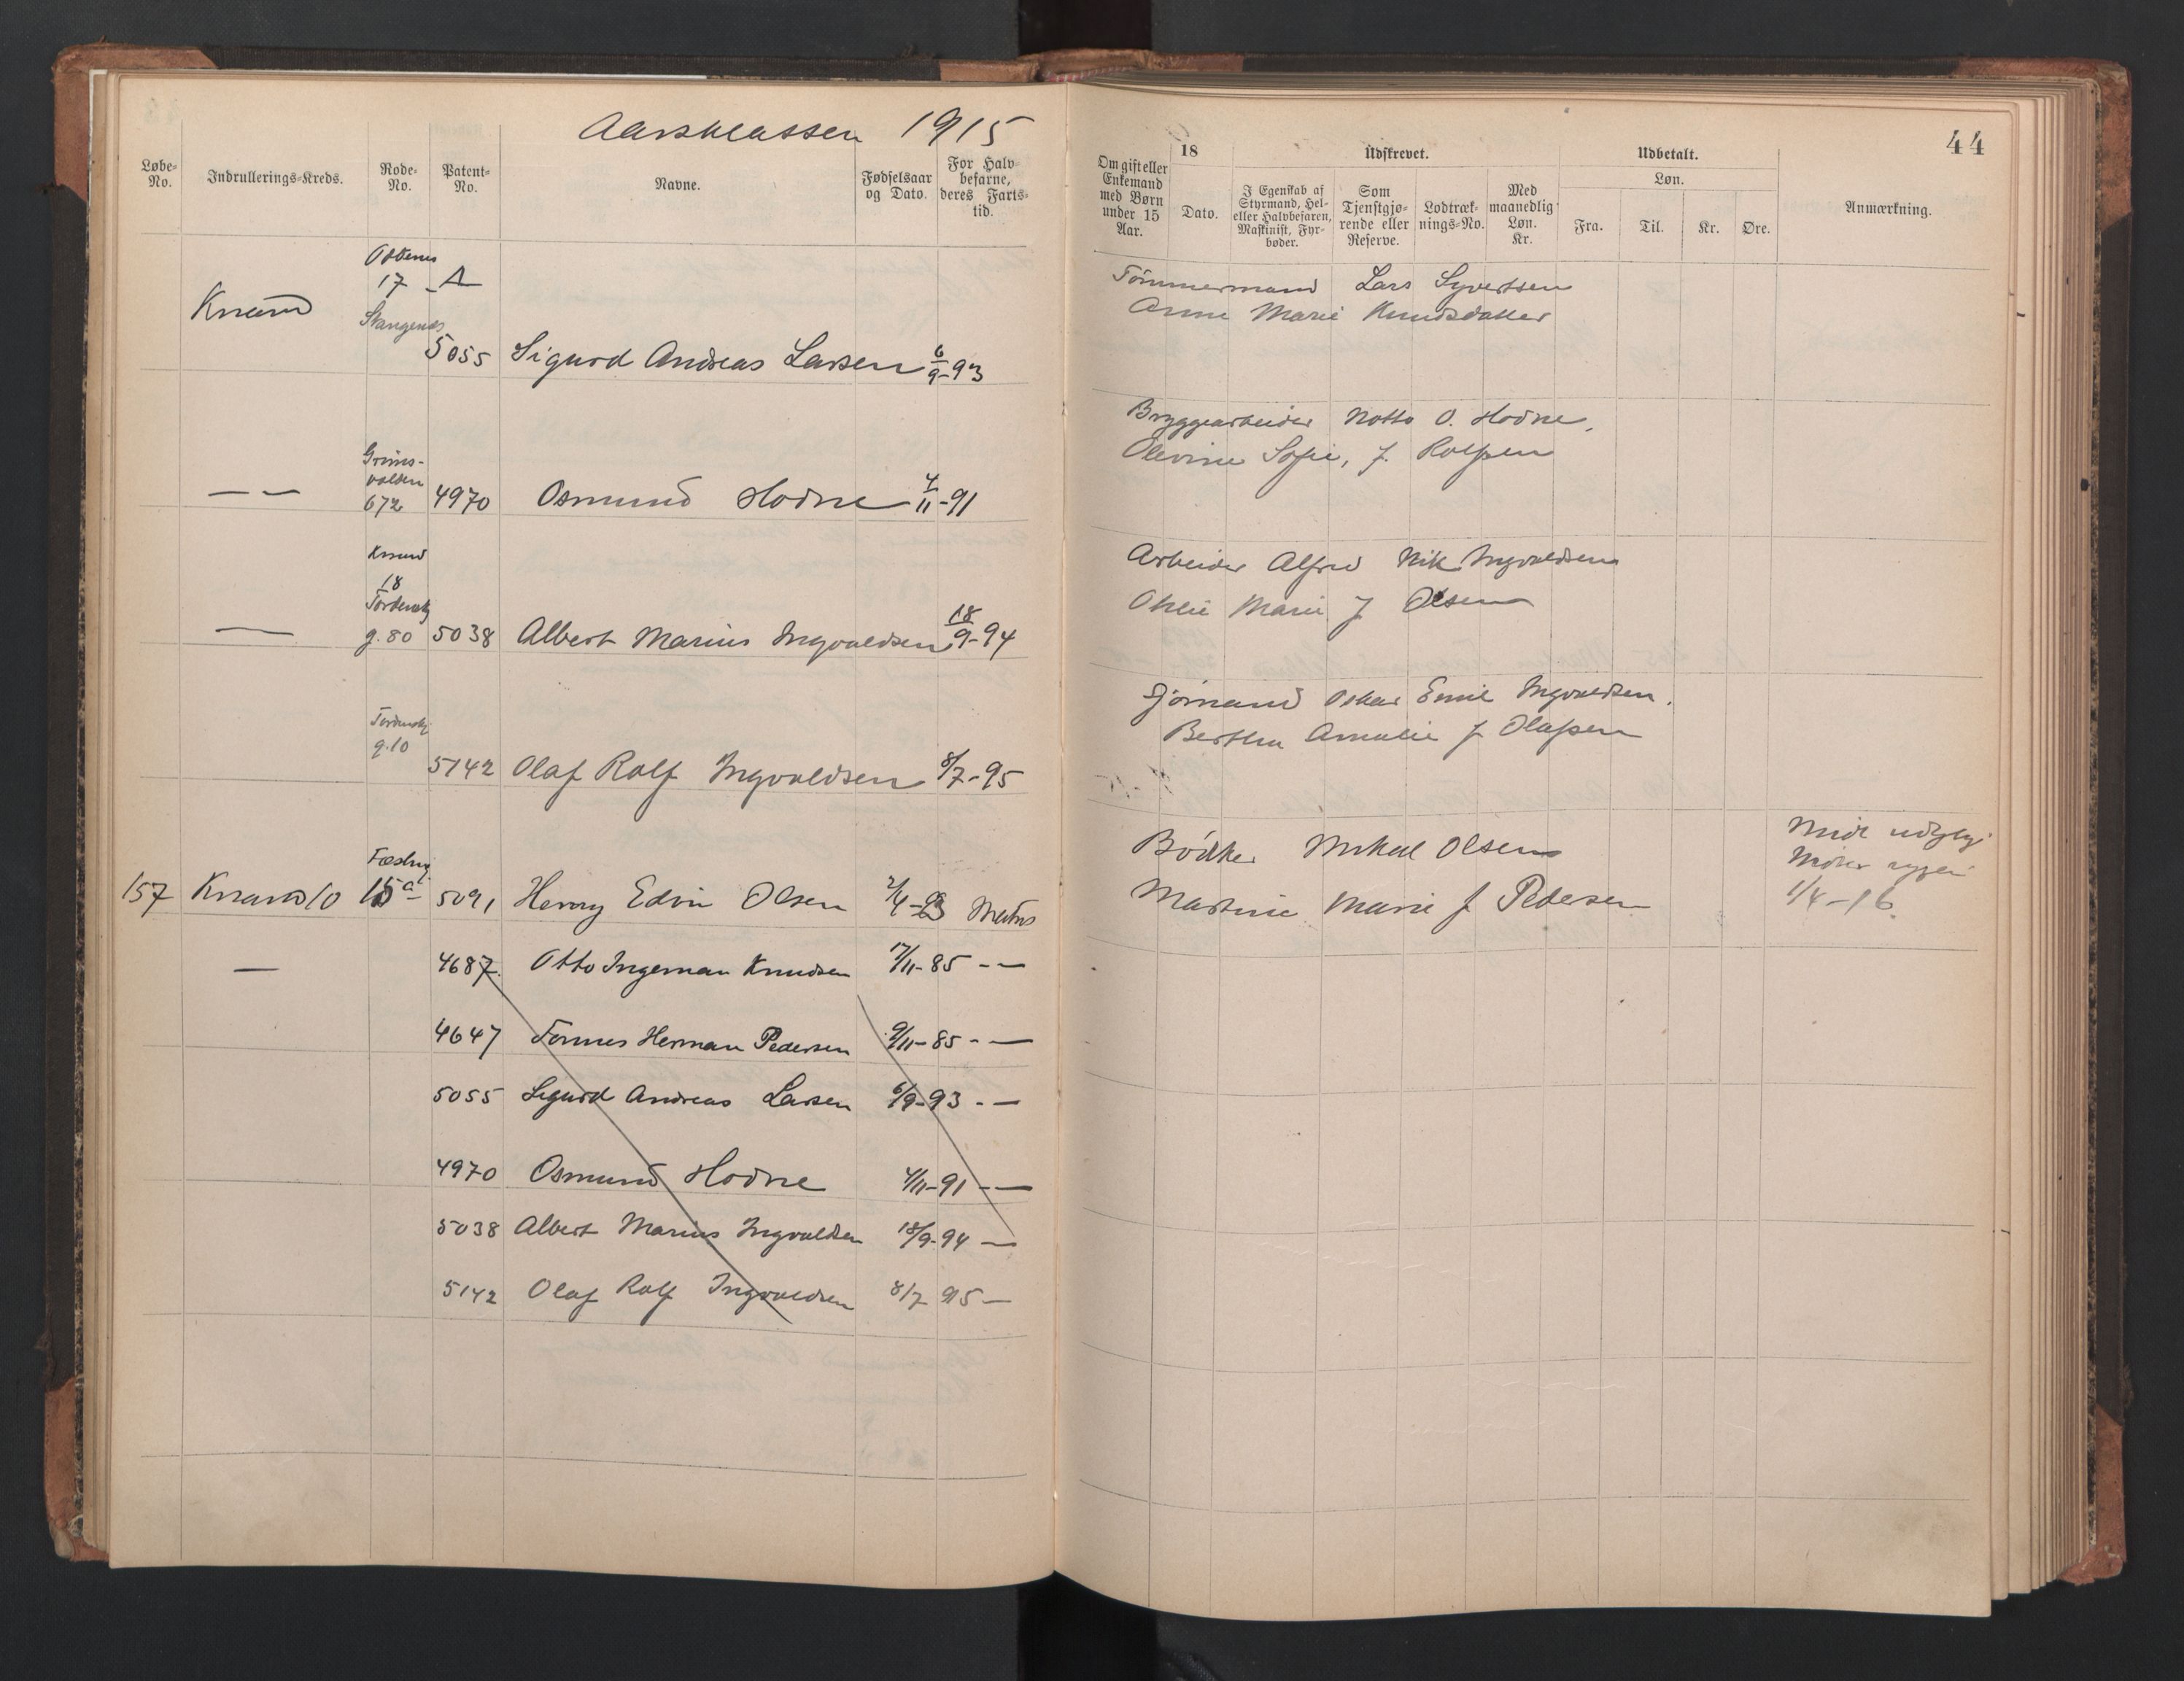 Aarsklassen 1915
44
Løbe-No.
Indrullerings-Kreds.
Rode-No.
Patent-No.
Navne.
Fødselsaar og Dato.
For Halvbefarne, deres Farts-tid.
Om gift eller Enkemand med Børn under 15 Aar.
18
Dato.
Udskrevet.
I Egenskab af Styrmand, Hel- eller Halvbefaren, Maskinist, Fyrbøder.
Som Tjenstgjørende eller Reserve.
Lodtræknings-No.
Med maanedlig Løn. Kr.
Udbetalt.
Løn.
Fra.
Til.
Kr.
Øre.
Anmærkning.
17 A
Tömmermand Lars Syvertsen
Anne Marie Knudsdatter
5055 Sigurd Andreas Larsen 6/9-93
Bryggearbeider Notto O. Hodne,
Olevine Sofie, f. Rolfsen
Grims-
volden
— — 672 4970 Osmund Hodne 4/11-91
18
Arbeider Alfred Nik Ingvaldsen
Marie f Olsen
— g. 80 5038 Albert Marius Ingvaldsen 18/9-94
Sjömand Oskar Emil Ingvaldsen.
Bertha Amalie f Olafsen
g. 10
5142 Olaf Rolf Ingvaldsen 8/7-95
Bödker Mikal Olsen
157 10 5091 Henry Edvin Olsen
Martine Marie f Pedersen
1/4-16.
— 4687. Otto Ingeman Knudsen 17/11-85 - —
4647 Tønnes Herman Pedersen 9/11-85 - —
5055 Sigurd Andreas Larsen 6/9-93 - —
4970 Osmund Hodne 4/11-91 - —
5038 Albert Marius Ingvaldsen 18/9-94 —
5142 Olaf Rolf Ingvaldsen 8/7 95 —